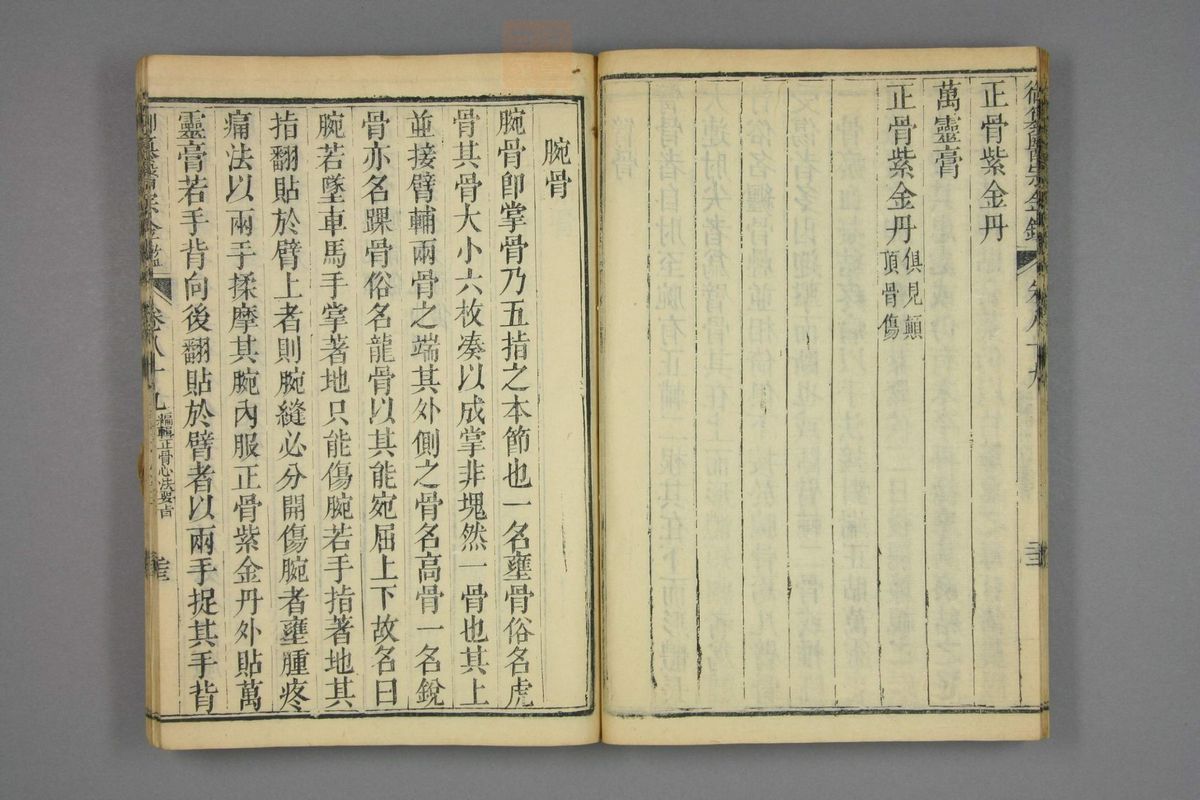 正骨紫金丹
萬靈膏
正骨紫金丹俱見顛頂骨傷
腕骨
腕骨卽掌骨乃五指之本節也一名壅骨俗名虎
骨其骨大小六枚湊以成掌非塊然一骨也其上
並接臂輔兩骨之端其外側之骨名高骨一名銳
骨亦名踝骨俗名龍骨以其能宛屈上下故名曰
腕若墜車馬手掌著地只能傷腕若手指著地其
指翻貼於臂上者則腕縫必分開傷腕者壅腫疼
痛法以兩手揉摩其腕內服正骨紫金丹外貼萬
靈膏若手背向後翻貼於臂者以兩手捉其手背
卷八十九 編輯正骨心法要旨